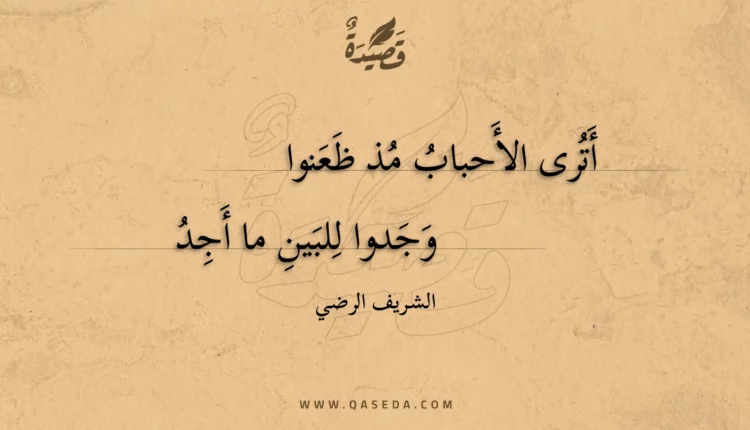 قَصِيدَةٌ
أَتُرى الأَحبابُ مُذ ظَعَنوا
وَجَدوا لِلبَينِ ما أَجِدُ
الشريف الرضي
WWW.QASEDA.COM